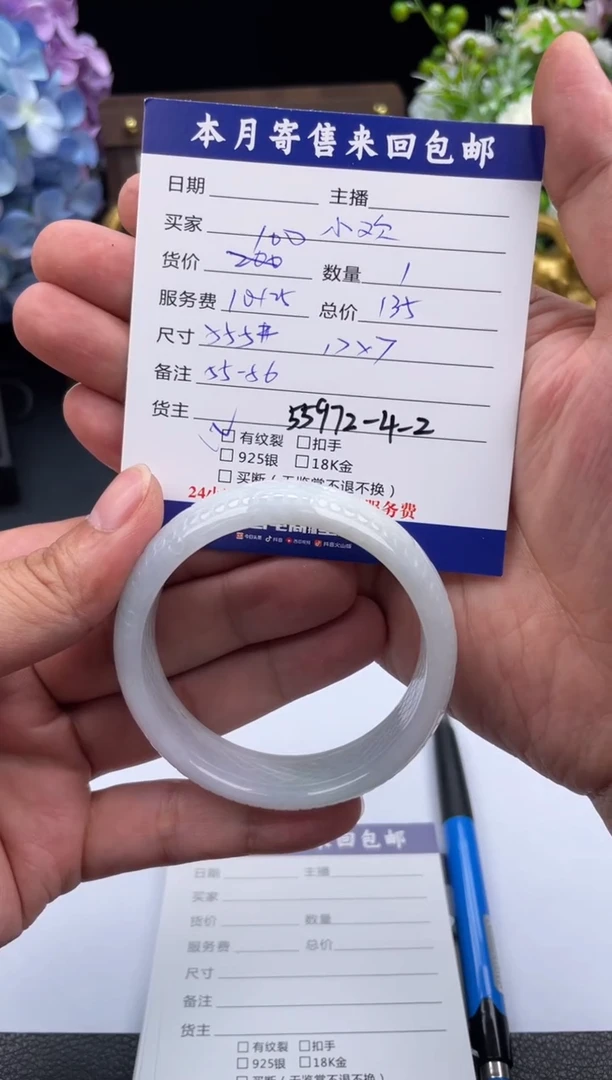 本月寄售来回包邮
日期 主播
买家 小欢
100
货价 200 数量 1
服务费 10+25 总价 135
尺寸 555# 17×7
备注 55-56
货主 55972-4-2
☑ 有纹裂 □ 扣手
□ 925银 □ 18K金
□ 买断（无鉴赏不退不换）
24小 服务费
今日头条 抖音 西瓜视频 抖音火山版
来回包邮
日期 主播
买家
货价 数量
服务费 总价
尺寸
备注
货主
□ 有纹裂 □ 扣手
□ 925银 □ 18K金
□ 买断（无鉴赏不退不换）